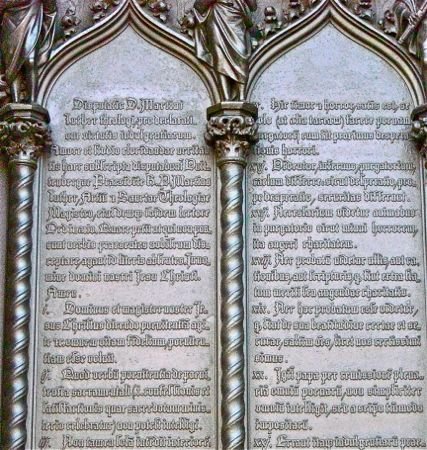 Disputatio D. Martini
Luther theologi, pro declarati
one virtutis indulgentiarum.
Amore et studio elucidandae veritatis
haec subscripta disputabuntur Wit
tenbergae Praesidente R. P. Martino
Luther, Artium et Sacrae Theologiae
Magistro, eiusdem ibidem lectore
Ordinario. Quare petit ut qui non pos
sunt verbis praesentes nobiscum dis
ceptare, agant id literis absentes. In no
mine domini nostri Jesu Christi.
Amen.
i. Dominus et magister noster Je
sus Christus dicendo poenitentiam agi
te omnem vitam fidelium, poeniten
tiam esse voluit.
ii. Quod verbum poenitentia de poeni
tentia sacramentali (i. confessionis et
satisfactionis quae sacerdotum minis
terio celebratur) non potest intelligi.
iii. Non tamen solam intendit interiorem
xv. Hic timor et horror satis est, se
solo (ut alia taceam) facere poenam
purgatorii cum sit proximus despera
tionis horrori.
xvi. Videntur, infernus purgatorium,
caelum differre, sicut desperatio, pro
pe desperatio, securitas differunt.
xvii. Necessarium videtur animabus
in purgatorio sicut minui horrorem,
ita augeri charitatem.
xviii. Nec probatum videtur ullis, aut ra
tionibus, aut scripturis, q sint extra sta
tum meriti seu augendae charitatis.
xix. Nec hoc probatum esse videtur,
q sint de sua beatitudine certae et se
curae, saltem oes, licet nos certissimi
simus.
xx. Igit papa per remissionem plena
riam omnium poenarum, non simpliciter
omnium intelligit, sed a seipso tantummodo
impositarum.
xxi. Errant itaq indulgentiarum prae